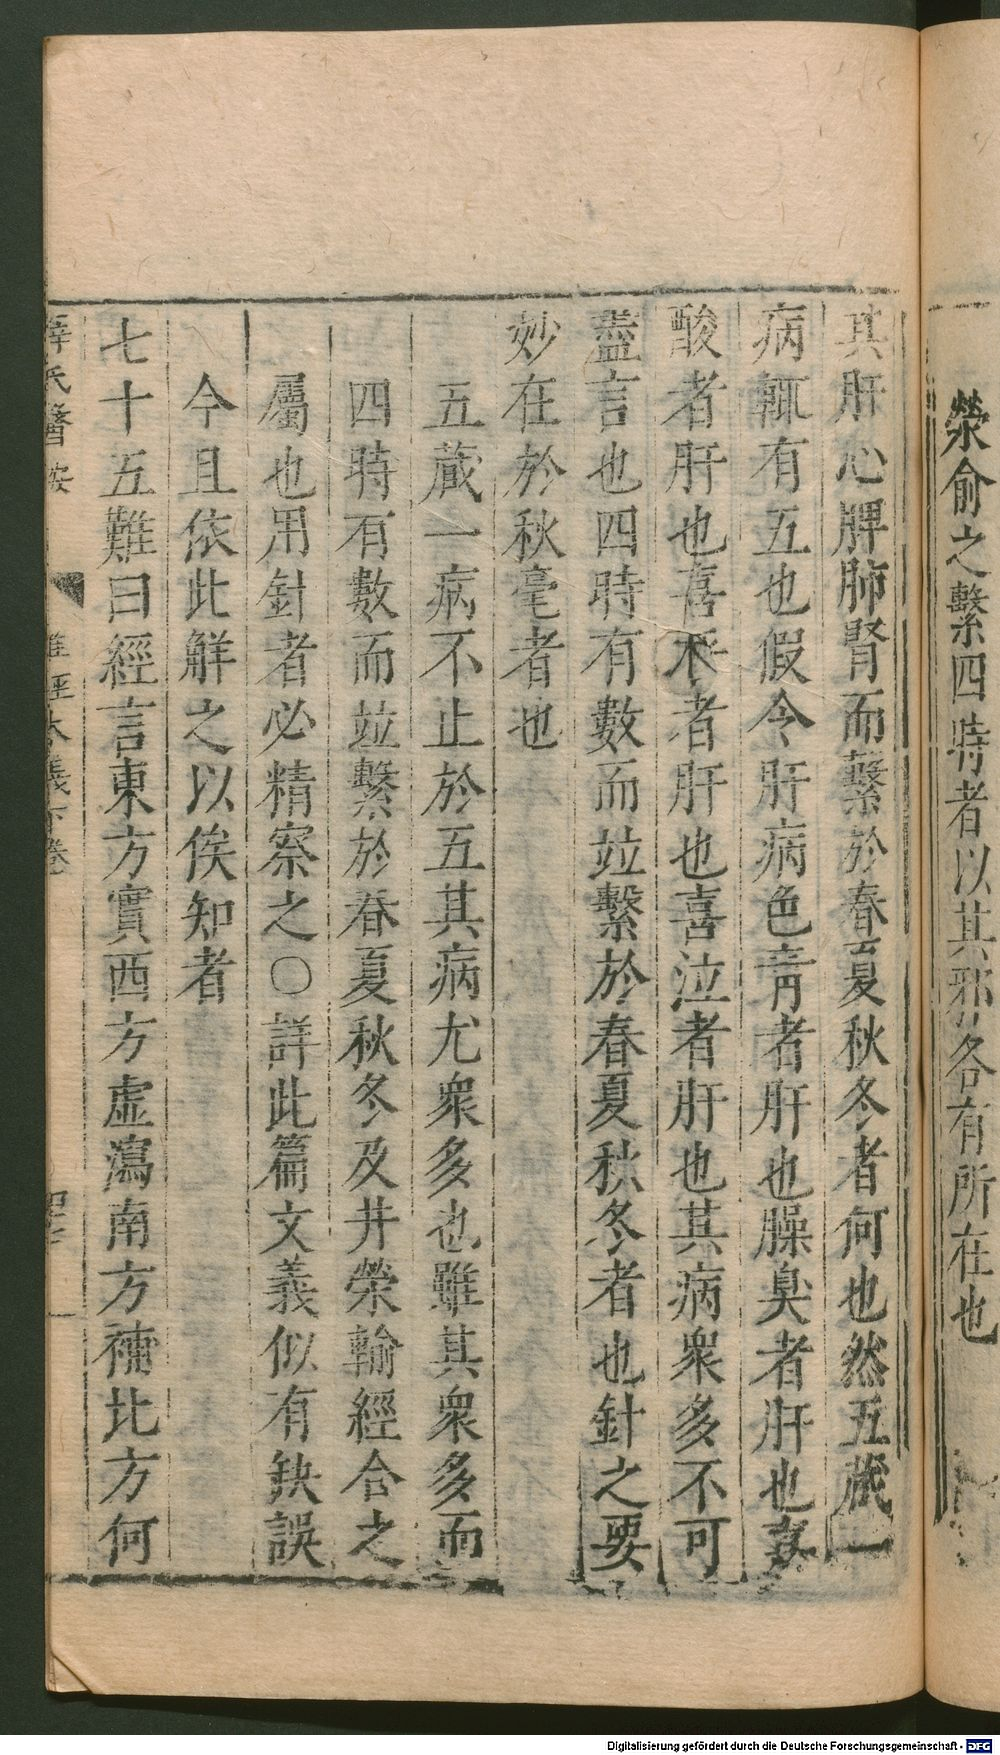 滎俞之繫四時者以其邪各有所在也
其肝心脾肺腎而繫於春夏秋冬者何也然五藏一
病輒有五也假令肝病色青者肝也臊臭者肝也喜
酸者肝也喜呼者肝也喜泣者肝也其病衆多不可
盡言也四時有數而竝繫於春夏秋冬者也針之要
妙在於秋毫者也
五藏一病不止於五其病尤衆多也雖其衆多而
四時有數而竝繫於春夏秋冬及井榮輸經合之
屬也用針者必精察之〇詳此篇文義似有缺誤
今且依此解之以俟知者
七十五難曰經言東方實西方虛瀉南方補北方何
薛氏醫按
難經本義下卷
Digitalisierung gefördert durch die Deutsche Forschungsgemeinschaft - DFG